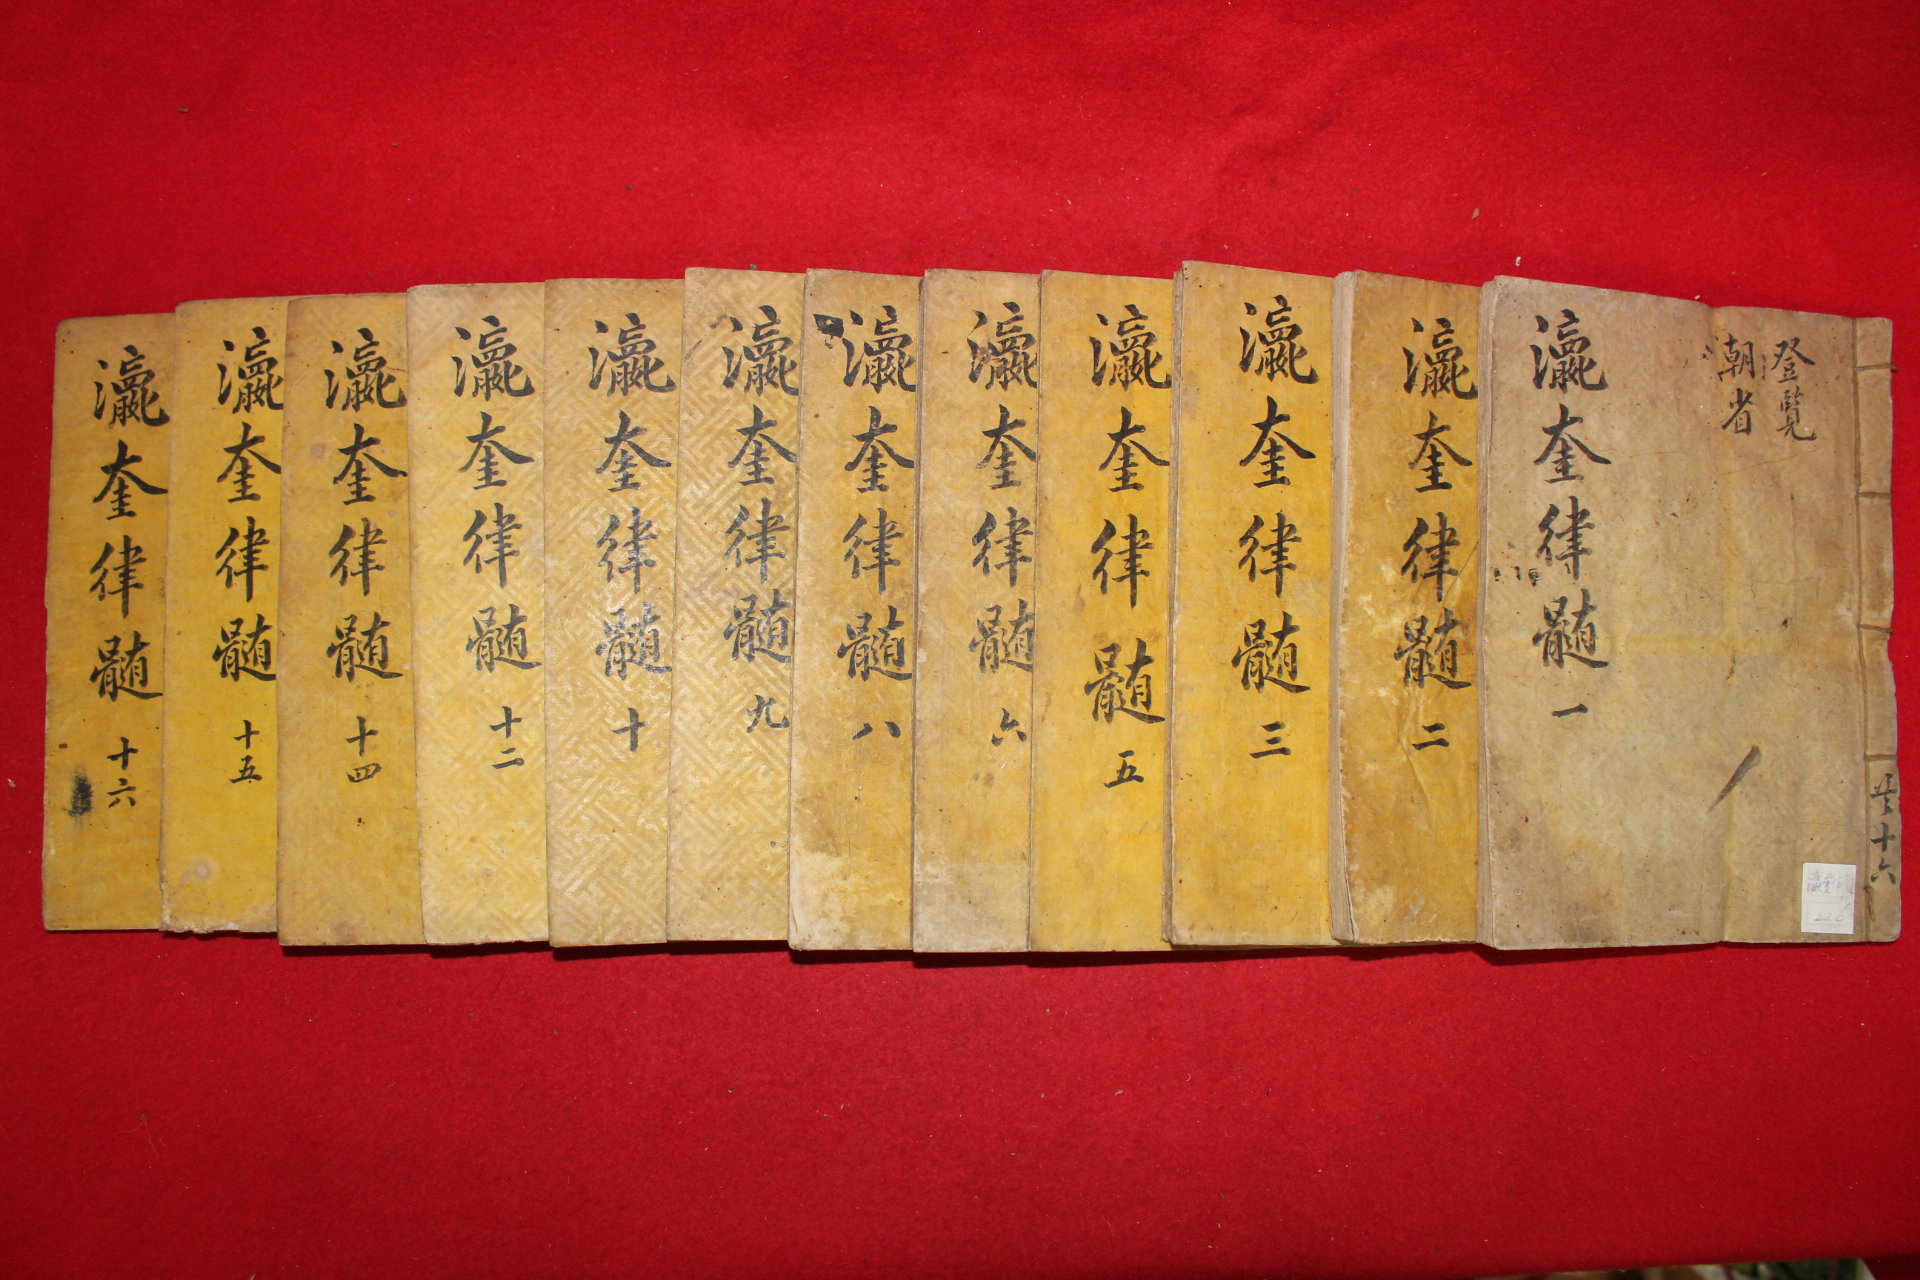 登覽
朝省
共十六
瀛奎律髓 一
瀛奎律髓 二
瀛奎律髓 三
瀛奎律髓 五
瀛奎律髓 六
瀛奎律髓 八
瀛奎律髓 九
瀛奎律髓 十
瀛奎律髓 十二
瀛奎律髓 十四
瀛奎律髓 十五
瀛奎律髓 十六